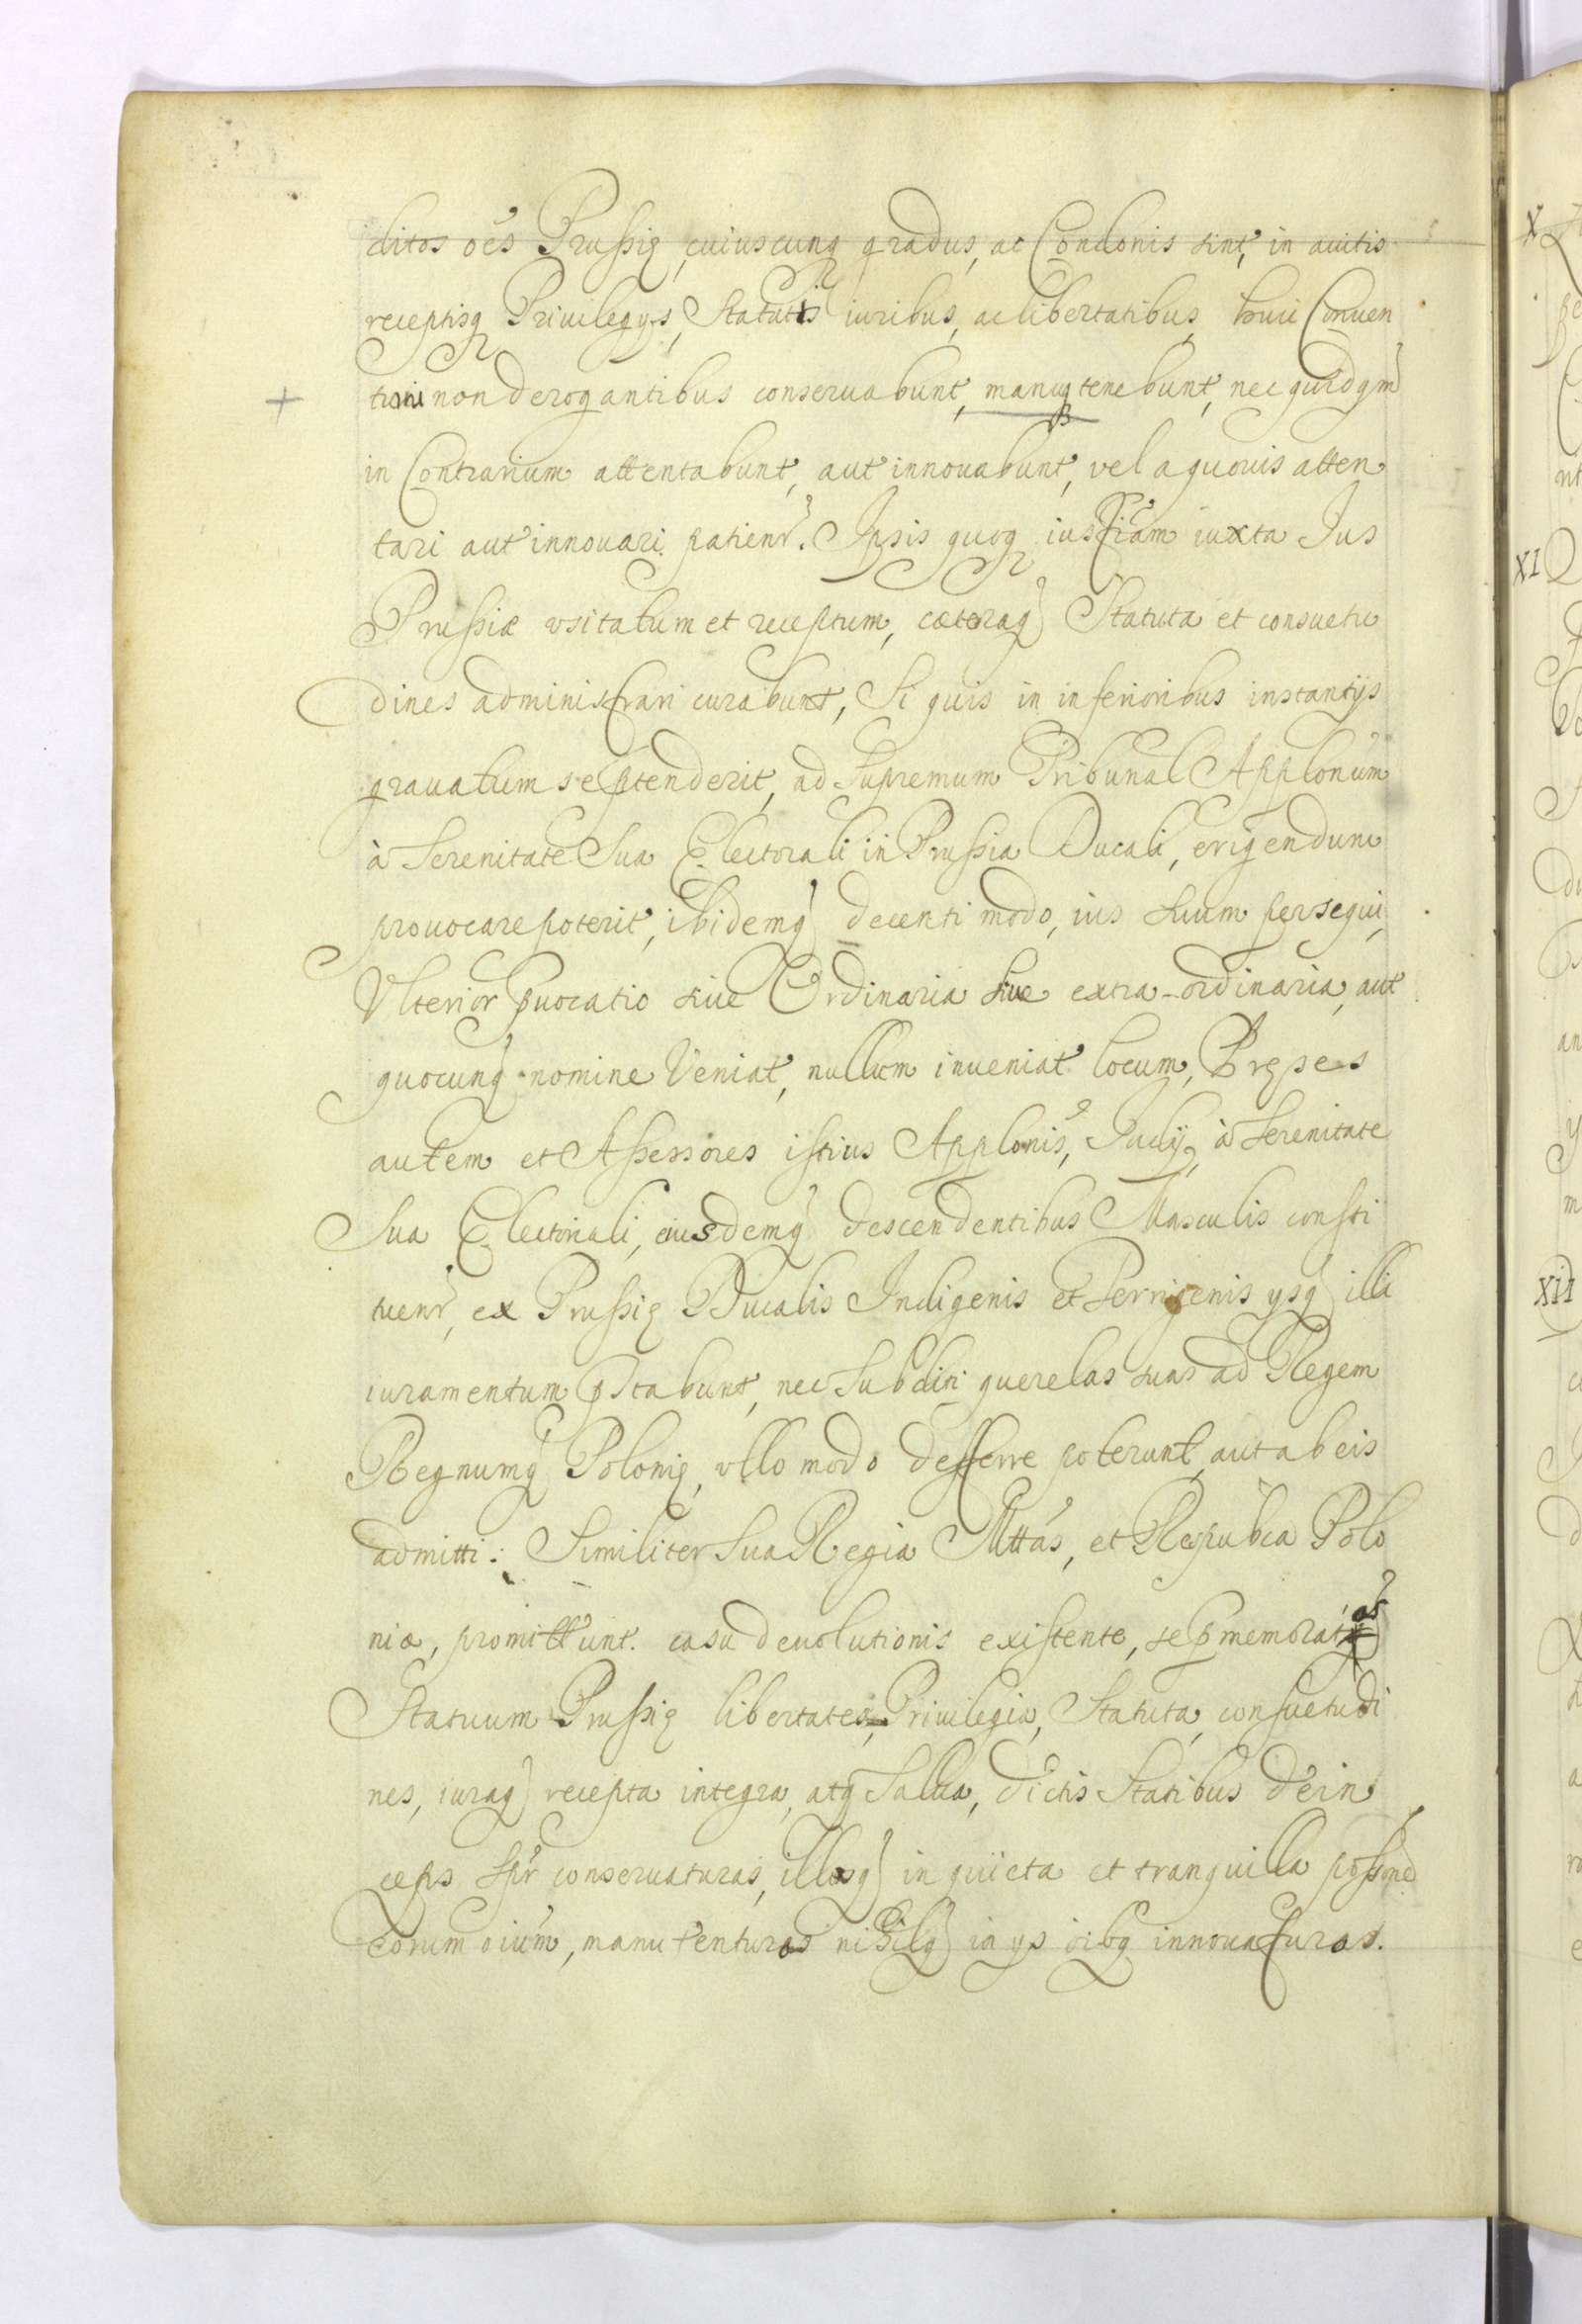 ditos oẽs Prussię, cuiuscunq gradus, ac Condonis sint, in auitis
receptisq Priuilegys, Statutis iuribus, ac libertatibus, huic Conuen
tioni non derogantibus conseruabunt, manuqtenebunt, nec quidqm
in Contrarium attentabunt, aut innouabunt, vel a quouis atten
tari aut innouari patienr. Ipsis quoq iustiãm iuxta Ius
Prussiæ vsitatum et receptum, cæteraq Statuta et consuetu
dines administrari curabunt, Si quis in inferioribus instantijs
grauatum se ptenderit, ad Supremum Tribunal Applonũm
à Serenitate Sua Electorali in Prussia Ducali, erigendum
prouocare poterit, ibidemq decenti modo, ius suum persequi,
Vlterior puocatio siue Ordinaria siue extra-ordinaria, aut
quocunq nomine Veniat, nullum inueniat locum, Pręses
autem et Assessores istius Applonis, Iudij, à Serenitate
Sua Electorali, eiusdemq descendentibus Masculis consti
tuenr, ex Prussię Ducalis Indigenis et Terrigenis ysq illi
iuramentum pstabunt, nec Subditi querelas suas ad Regem
Regnumq Polonię, vllo modo defferre poterunt, aut ab eis
admitti: Similiter Sua Regia Mttãs, et Respubca Polo
niæ, promittunt. casu deuolutionis existente, se pmemoratos
Statuum Prussię libertates, Priuilegia, Statuta, consuetudi
nes, iuraq recepta integra, atq Salua, dictis Statibus dein
ceps spr conseruaturas, illosq in quieta et tranquilla possone
eorum oiũm, manutenturas nihilq in ys oibq innouaturas.
X
XI
XII